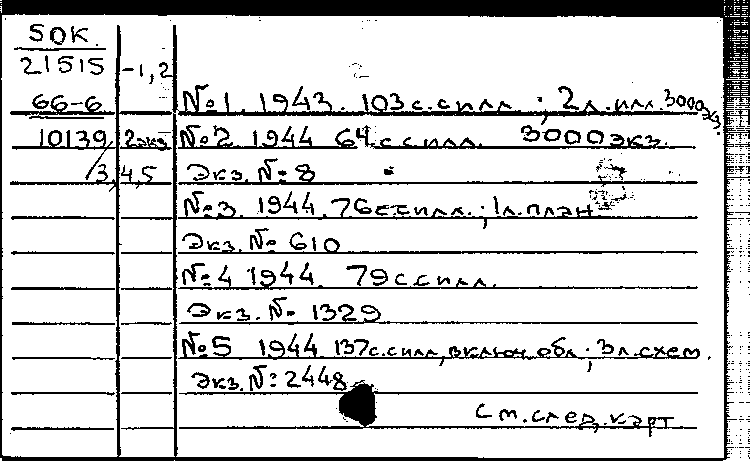 SOK.
21515 -1,2
66-6 №1. 1943. 103 с. с илл. ; 2 л. илл. 3000 экз.
10139 2 экз №2. 1944 64 с. с илл. 3000 экз.
/3,4,5 Экз. № 8
№3. 1944. 76 с. с илл. ; 1 л. план
Экз. № 610
№4 1944. 79 с. с илл.
Экз. № 1329
№5 1944 137 с. с илл., включ. обл. ; 3 л. схем.
Экз. № 2448
См. след. карт